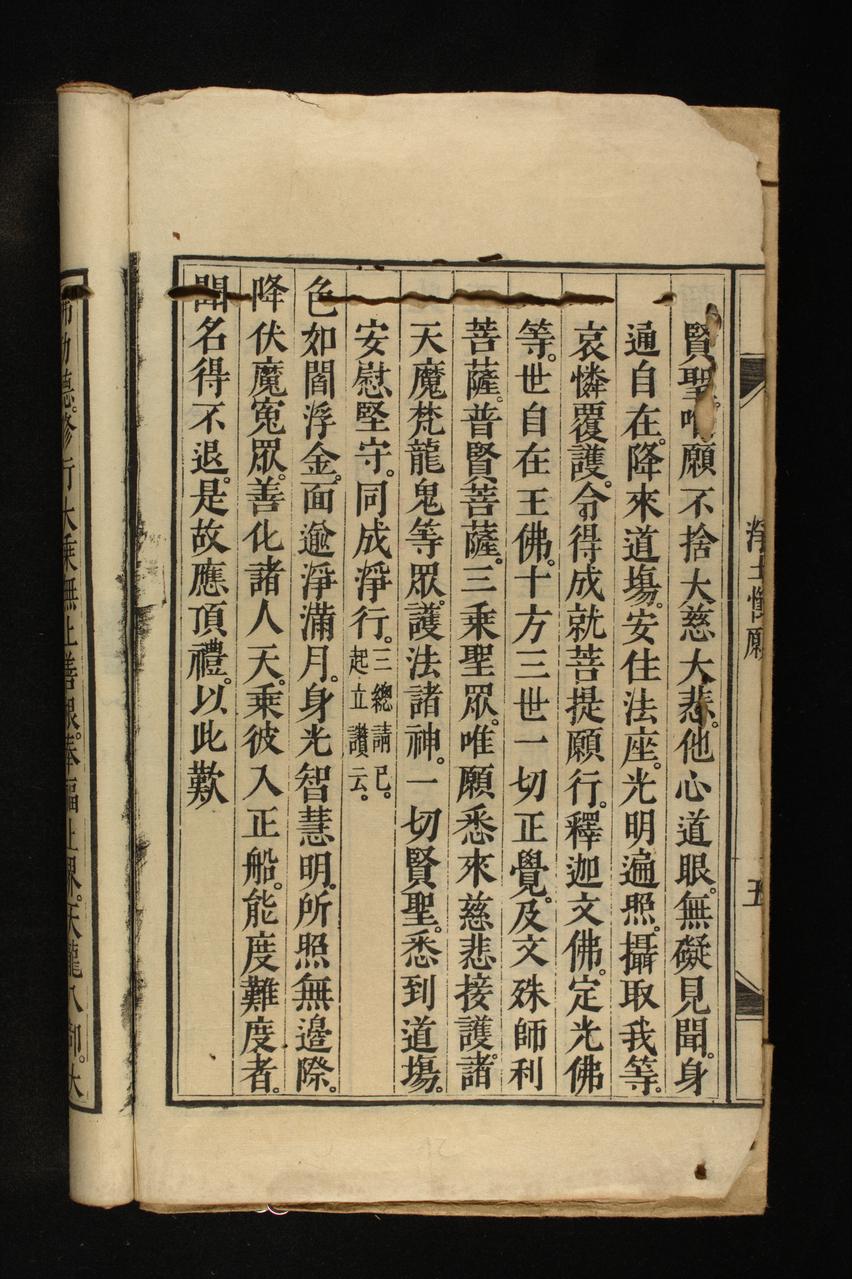 淨土懺願
五
賢聖。唯願不捨大慈大悲。他心道眼。無礙見聞。身
通自在。降來道場。安住法座。光明遍照。攝取我等。
哀憐覆護。令得成就菩提願行。釋迦文佛。定光佛
等。世自在王佛。十方三世一切正覺。及文殊師利
菩薩。普賢菩薩。三乘聖眾。唯願悉來慈悲接護。諸
天魔梵龍鬼等眾。護法諸神。一切賢聖。悉到道場。
安慰堅守。同成淨行。三總請已。起立讚云。
色如閻浮金。面逾淨滿月。身光智慧明。所照無邊際。
降伏魔寃眾。善化諸人天。乘彼八正船。能度難度者。
聞名得不退。是故應頂禮。以此歎
功德。修行大乘無上善根。奉福上界。天龍八部。大